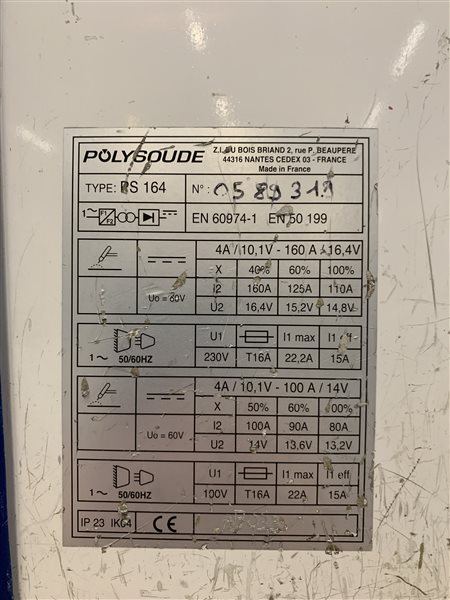 POLYSOUDE
Z.I. DU BOIS BRIAND 2, rue P. BEAUPERE
44316 NANTES CEDEX 03 - FRANCE
Made in France
TYPE: PS 164 N° :
1~ F1 F2 EN 60974-1 EN 50 199
4A / 10,1V - 160 A / 16,4V
X 40% 60% 100%
I2 160A 125A 110A
Uo = 60V U2 16,4V 15,2V 14,8V
U1 I1 max I1 eff
1~ 50/60HZ 230V T16A 22,2A 15A
4A / 10,1V - 100 A / 14V
X 50% 60% 100%
I2 100A 90A 80A
Uo = 60V U2 14V 13,6V 13,2V
U1 I1 max I1 eff
1~ 50/60HZ 100V T16A 22A 15A
IP 23 IK04 CE